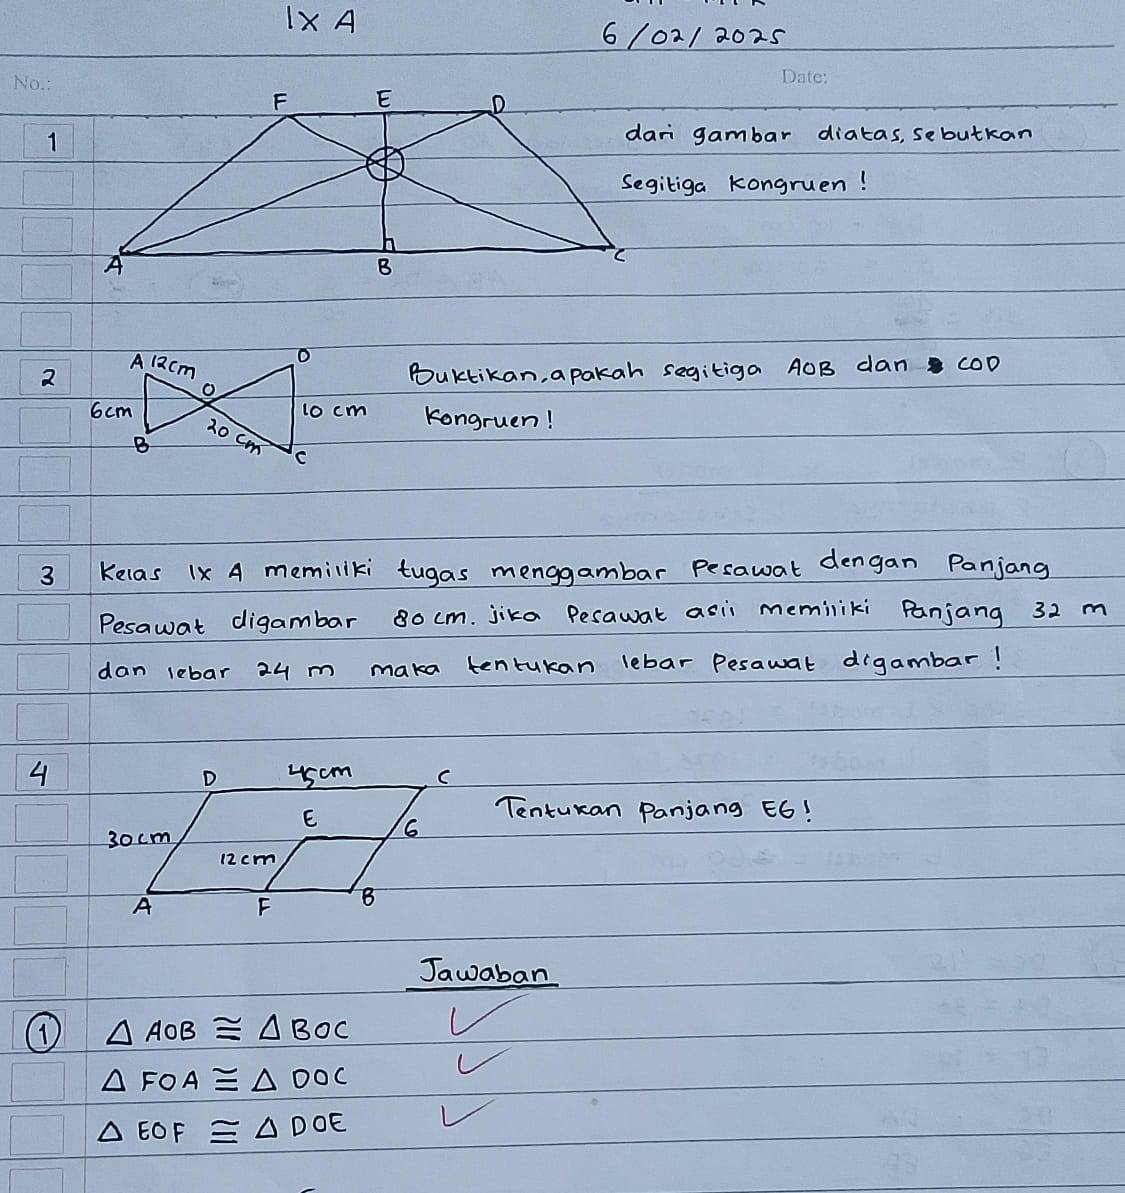 IX A
6/02/2025
No.:
Date:
F E D
1
dari gambar diatas, sebutkan
segitiga kongruen!
A B C
2
A 12cm O D
6cm 10 cm
B 20 cm C
Buktikan, apakah segitiga AOB dan COD
kongruen!
3 Kelas IX A memiliki tugas menggambar Pesawat dengan Panjang
Pesawat digambar 80 cm. jika Pesawat asli memiliki Panjang 32 m
dan lebar 24 m maka tentukan lebar Pesawat digambar!
4
D 45cm C
E G
30cm
12cm
A F B
Tentukan Panjang EG!
Jawaban
1 △ AOB ≅ △ BOC
△ FOA ≅ △ DOC
△ EOF ≅ △ DOE